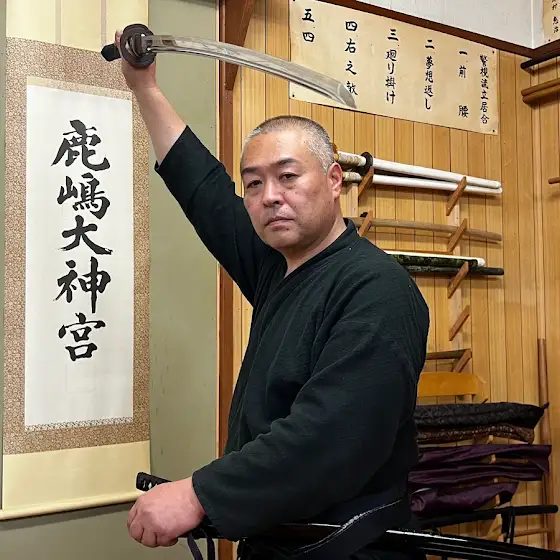 鹿嶋大神宮
賢視流立居合
一前腰
二夢想返し
三廻り掛け
四右之敵
五四